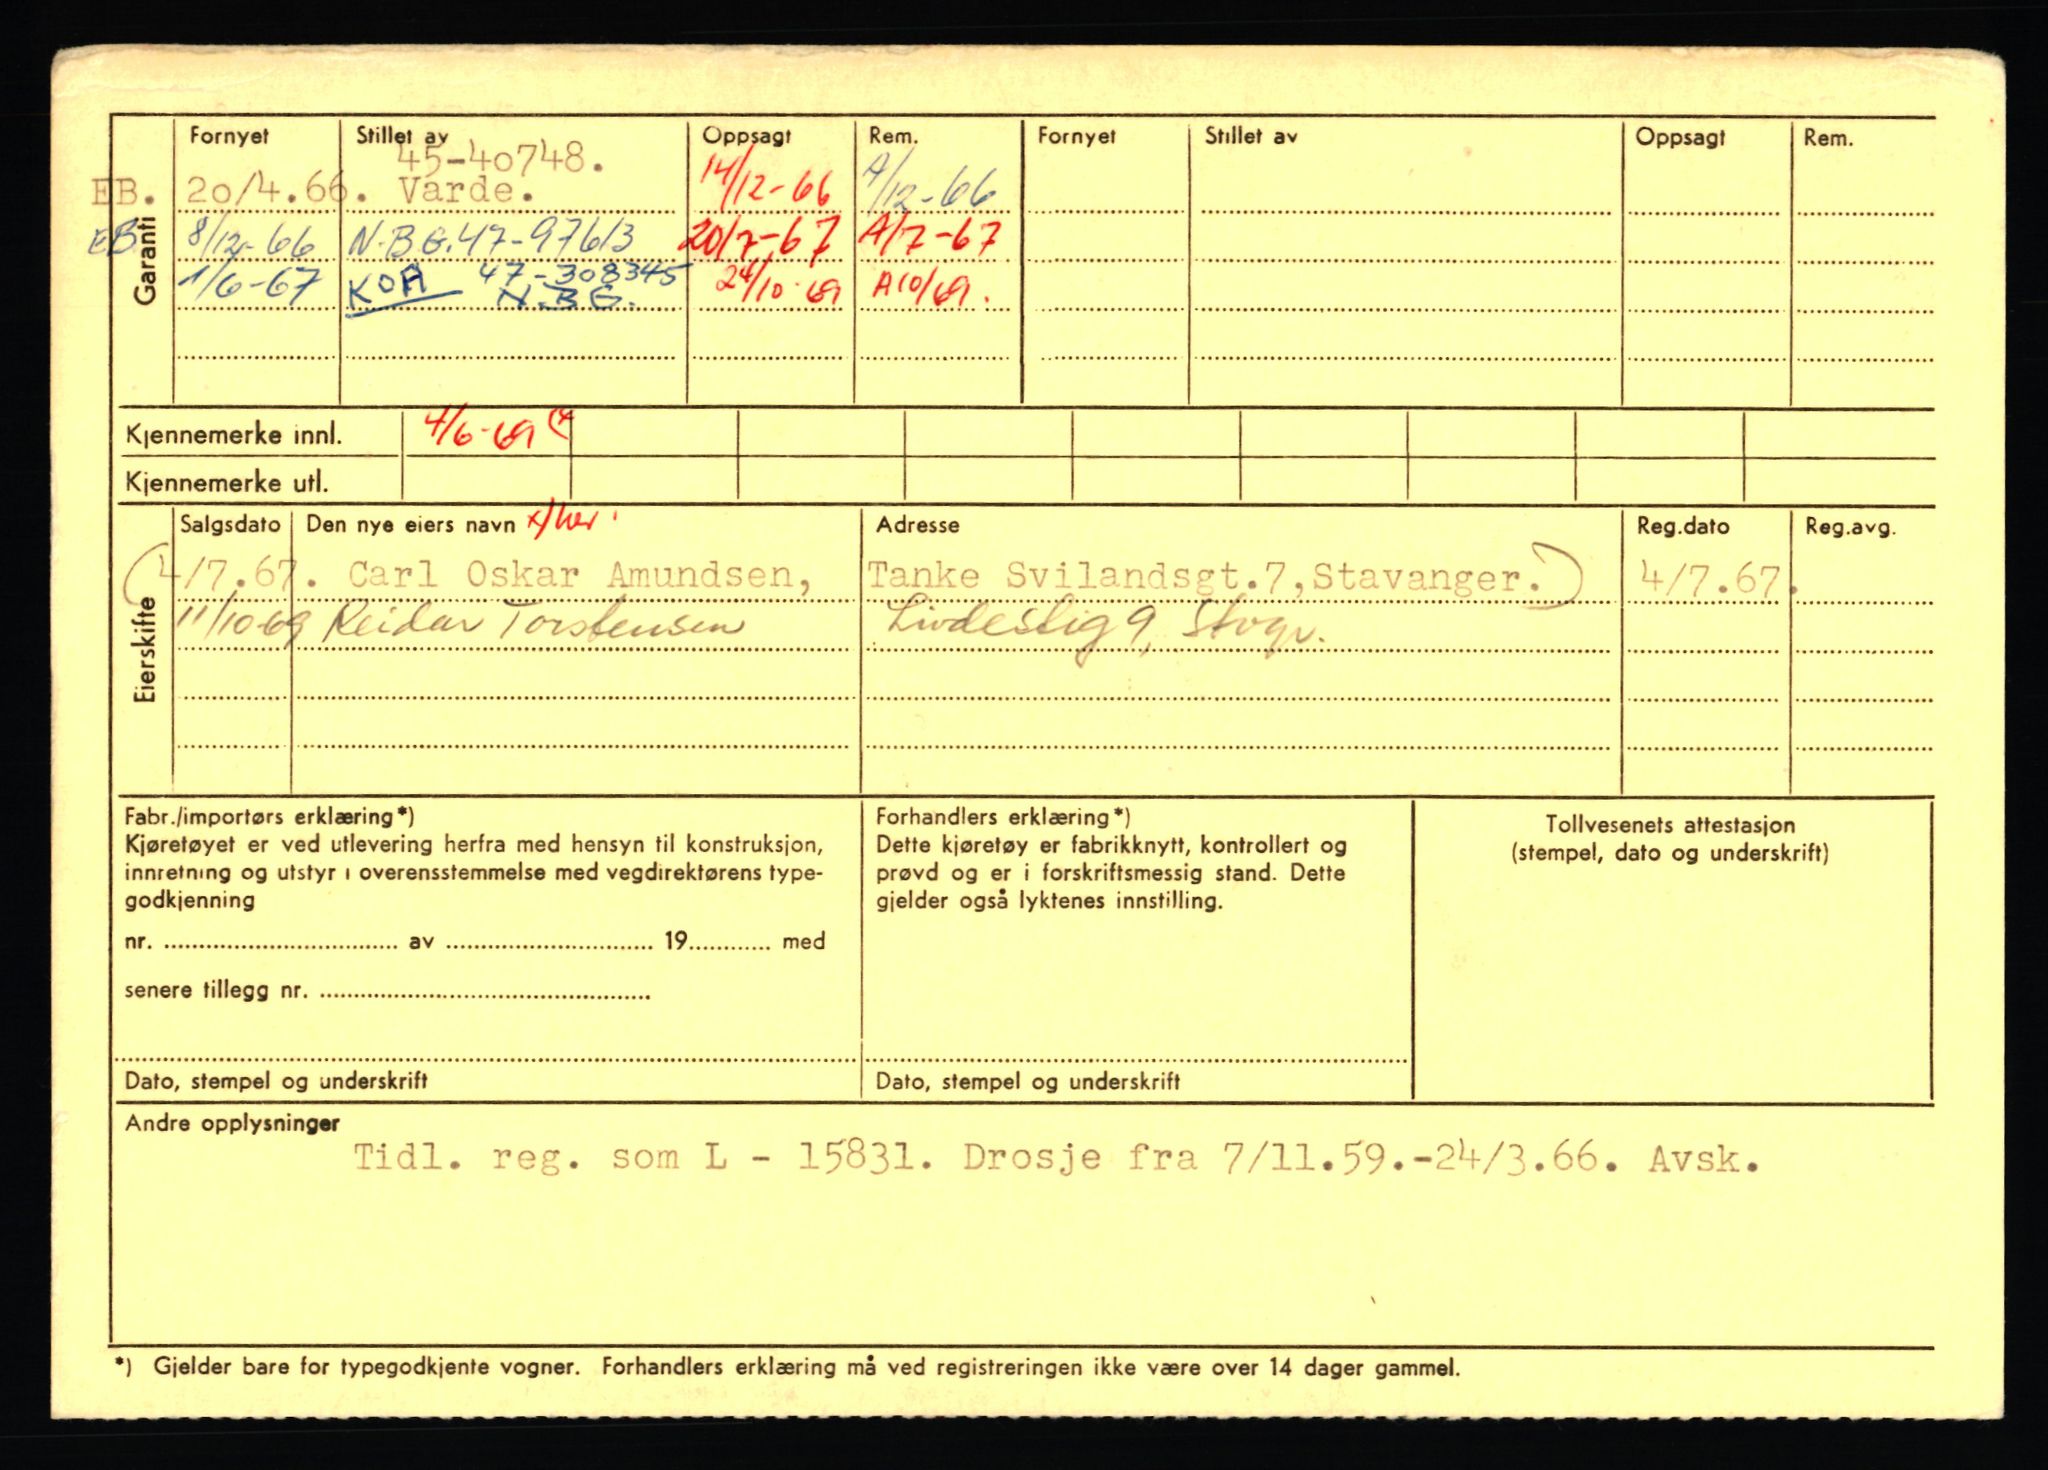 Fornyet Stillet av Oppsagt Rem. Fornyet Stillet av Oppsagt Rem.
45-40748.
EB. 20/4.66. Varde. 14/12-66 A/12-66
EB 8/12-66 N.B.G. 47-97613 20/7-67 A/7-67
1/6-67 KOA 47-308345 24/10-69 A10/69.
N.B.G.
Garanti
Kjennemerke innl. 4/6-69
Kjennemerke utl.
Salgsdato Den nye eiers navn x/her Adresse Reg.dato Reg.avg.
(4/7.67. Carl Oskar Amundsen, Tanke Svilandsgt.7, Stavanger.) 4/7.67.
11/10-69 Reidar Torstensen Livdestig 9, Stvgr.
Eierskifte
Fabr./importørs erklæring*)
Kjøretøyet er ved utlevering herfra med hensyn til konstruksjon,
innretning og utstyr i overensstemmelse med vegdirektørens type-
godkjenning
nr. ........ av ........ 19........ med
senere tillegg nr. ........
Dato, stempel og underskrift
Forhandlers erklæring*)
Dette kjøretøy er fabrikknytt, kontrollert og
prøvd og er i forskriftsmessig stand. Dette
gjelder også lyktenes innstilling.
Dato, stempel og underskrift
Tollvesenets attestasjon
(stempel, dato og underskrift)
Andre opplysninger
Tidl. reg. som L - 15831. Drosje fra 7/11.59.-24/3.66. Avsk.
*) Gjelder bare for typegodkjente vogner. Forhandlers erklæring må ved registreringen ikke være over 14 dager gammel.